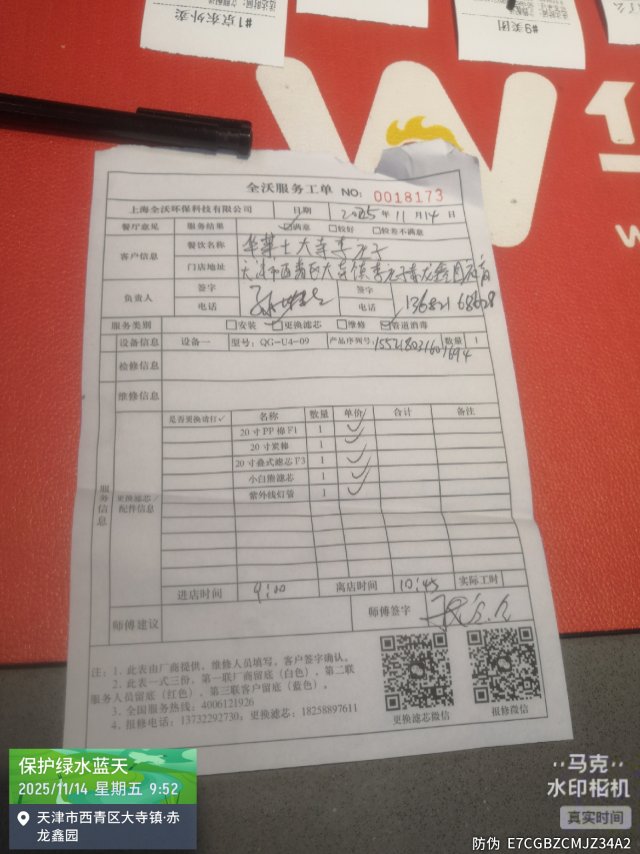 #1京东外卖
#9美团
全沃服务工单 NO: 0018173
上海全沃环保科技有限公司 日期 2025年11月14日
餐厅意见 服务结果 ☑满意 □较好 □较差不满意
客户信息 餐饮名称 华莱士大寺李元子
门店地址 天津市西青区大寺镇李元子赤龙鑫园
负责人 签字 签字
电话 电话
服务类别 □安装 ☑更换滤芯 □维修 ☑管道消毒
设备信息 设备一 型号: QG-U4-09 产品序列号: 数量 1
检修信息
维修信息
服务信息
更换滤芯/配件信息
是否更换请打✓ 名称 数量 单价 合计 备注
20寸PP棉F1 1 ✓
20寸炭棒 1 ✓
20寸叠式滤芯F3 1 ✓
小白熊滤芯 1 ✓
紫外线灯管 1 ✓
进店时间 9:00 离店时间 10:45 实际工时
师傅建议 师傅签字
注: 1、此表由厂商提供, 维修人员填写, 客户签字确认。
2、此表一式三份, 第一联厂商留底(白色)、第二联
服务人员留底(红色)、第三联客户留底(蓝色)。
3、全国服务热线: 4006121926
4、报修电话: 13732292730; 更换滤芯: 18258897611
更换滤芯微信 报修微信
保护绿水蓝天
2025/11/14 星期五 9:52
天津市西青区大寺镇·赤
龙鑫园
马克
水印相机
真实时间
防伪 E7CGBZCMJZ34A2